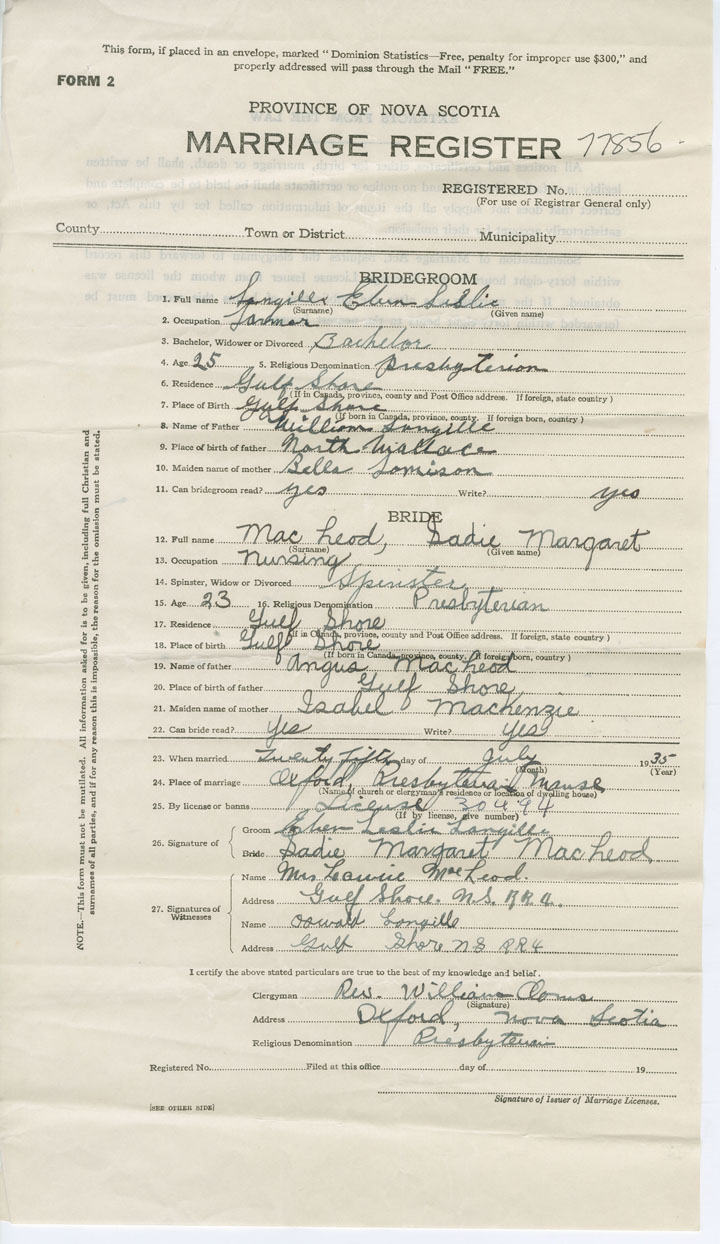 This form, if placed in an envelope, marked "Dominion Statistics—Free, penalty for improper use $300," and
properly addressed will pass through the Mail "FREE."
FORM 2
PROVINCE OF NOVA SCOTIA
MARRIAGE REGISTER 77856
REGISTERED No.
(For use of Registrar General only)
County Town or District Municipality
BRIDEGROOM
1. Full name Langille Eben Leslie
(Surname) (Given name)
2. Occupation Farmer
3. Bachelor, Widower or Divorced Bachelor
4. Age 25 5. Religious Denomination Presbyterian
6. Residence Gulf Shore
(If in Canada, province, county and Post Office address. If foreign, state country)
7. Place of Birth Gulf Shore
(If born in Canada, province, county. If foreign born, country)
8. Name of Father William Langille
9. Place of birth of father North Wallace
10. Maiden name of mother Bella Jamison
11. Can bridegroom read? yes Write? yes
BRIDE
12. Full name MacLeod, Sadie Margaret
(Surname) (Given name)
13. Occupation Nursing
14. Spinster, Widow or Divorced Spinster
15. Age 23 16. Religious Denomination Presbyterian
17. Residence Gulf Shore
(If in Canada, province, county and Post Office address. If foreign, state country)
18. Place of birth Gulf Shore
(If born in Canada, province, county. If foreign born, country)
19. Name of father Angus MacLeod
20. Place of birth of father Gulf Shore
21. Maiden name of mother Isabel Mackenzie
22. Can bride read? Yes Write? yes
23. When married Twenty fifth day of July 1935
(Month) (Year)
24. Place of marriage Oxford, Presbyterian Manse
(Name of church or clergyman's residence or location of dwelling house)
25. By license or banns License 30494
(If by license, give number)
26. Signature of Groom Eben Leslie Langille
Bride Sadie Margaret MacLeod
27. Signatures of Witnesses Name Mrs Laurie MacLeod.
Address Gulf Shore. N.S. RR4.
Name Oswald Langille
Address Gulf Shore NS RR4
I certify the above stated particulars are true to the best of my knowledge and belief.
Clergyman Rev. William
(Signature)
Address Oxford, Nova Scotia
Religious Denomination Presbyterian
Registered No. Filed at this office day of 19
Signature of Issuer of Marriage Licenses.
[SEE OTHER SIDE]
NOTE.—This form must not be mutilated. All information asked for is to be given, including full Christian and
surnames of all parties, and if for any reason this is impossible, the reason for the omission must be stated.